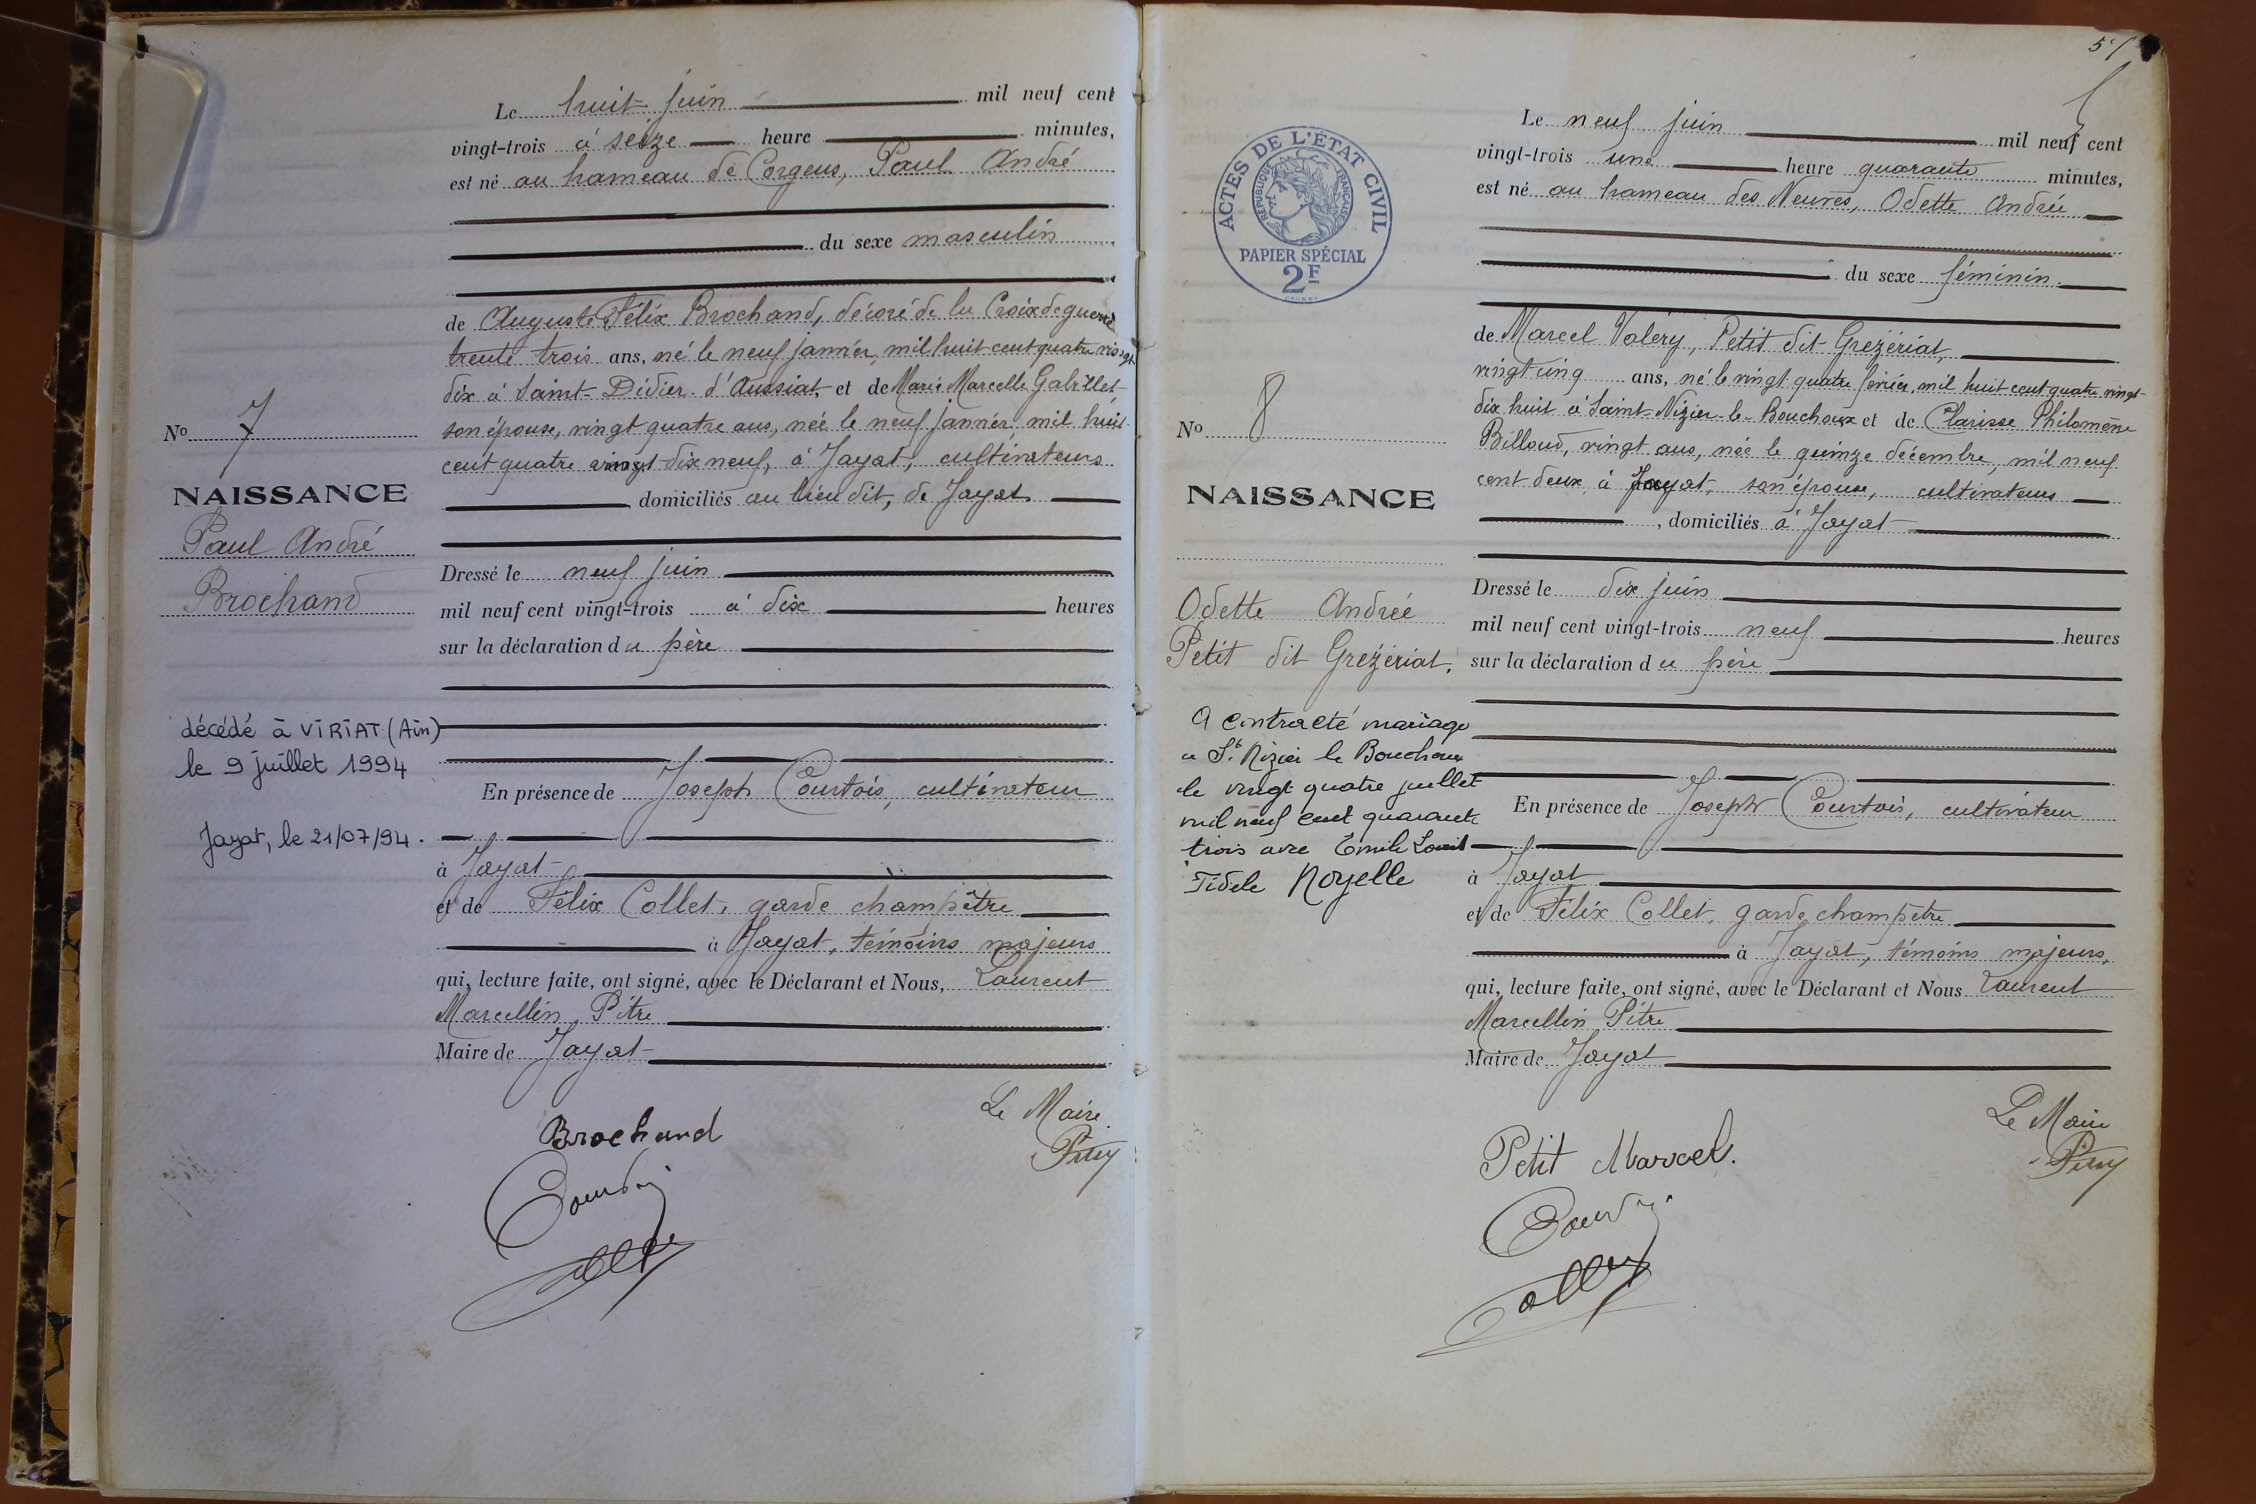 Le huit juin mil neuf cent
vingt-trois à seize heure minutes,
est né au hameau de Corgens, Paul André
du sexe masculin
de Auguste Félix Brochand, décoré de la Croix de guerre
trente trois ans, né le neuf janvier, mil huit cent quatre vingt
dix à Saint-Didier-d'Aussiat, et de Marie Marcelle Gabillet
son épouse, vingt quatre ans, née le neuf janvier mil huit
cent quatre vingt dix neuf, à Jayat, cultivateurs
domiciliés au lieu dit, de Jayat
No 7
NAISSANCE
Paul André
Brochand
Dressé le neuf juin
mil neuf cent vingt-trois à dix heures
sur la déclaration du père
décédé à VIRIAT (Ain)
le 9 juillet 1994
Jayat, le 21/07/94.
En présence de Joseph Courtois, cultivateur
à Jayat
et de Félix Collet, garde champêtre
à Jayat, témoins majeurs
qui, lecture faite, ont signé, avec le Déclarant et Nous, Laurent
Marcellin Pitre
Maire de Jayat
Le Maire
Brochand
57
ACTES DE L'ÉTAT CIVIL
RÉPUBLIQUE FRANÇAISE
PAPIER SPÉCIAL
2F
Le neuf juin mil neuf cent
vingt-trois une heure quarante minutes,
est né au hameau des Neuves, Odette Andrée
du sexe féminin
de Marcel Valéry, Petit dit Grézériat,
vingt cinq ans, né le vingt quatre février, mil huit cent quatre vingt
dix huit à Saint-Nizier-le-Bouchoux et de Clarisse Philomène
Billoud, vingt ans, née le quinze décembre, mil neuf
cent deux, à Jayat, son épouse, cultivateurs
, domiciliés à Jayat
No 8
NAISSANCE
Odette Andrée
Petit dit Grezériat.
Dressé le dix juin
mil neuf cent vingt-trois neuf heures
sur la déclaration du père
A contracté mariage
a St Nizier le Bouchoux
le vingt quatre juillet
mil neuf cent quarante
trois avec Emile Louis
Fidele Noyelle
En présence de Joseph Courtois, cultivateur
à Jayat
et de Félix Collet, garde champêtre
à Jayat, témoins majeurs,
qui, lecture faite, ont signé, avec le Déclarant et Nous Laurent
Marcellin Pitre
Maire de Jayat
Le Maire
Petit Marcel.